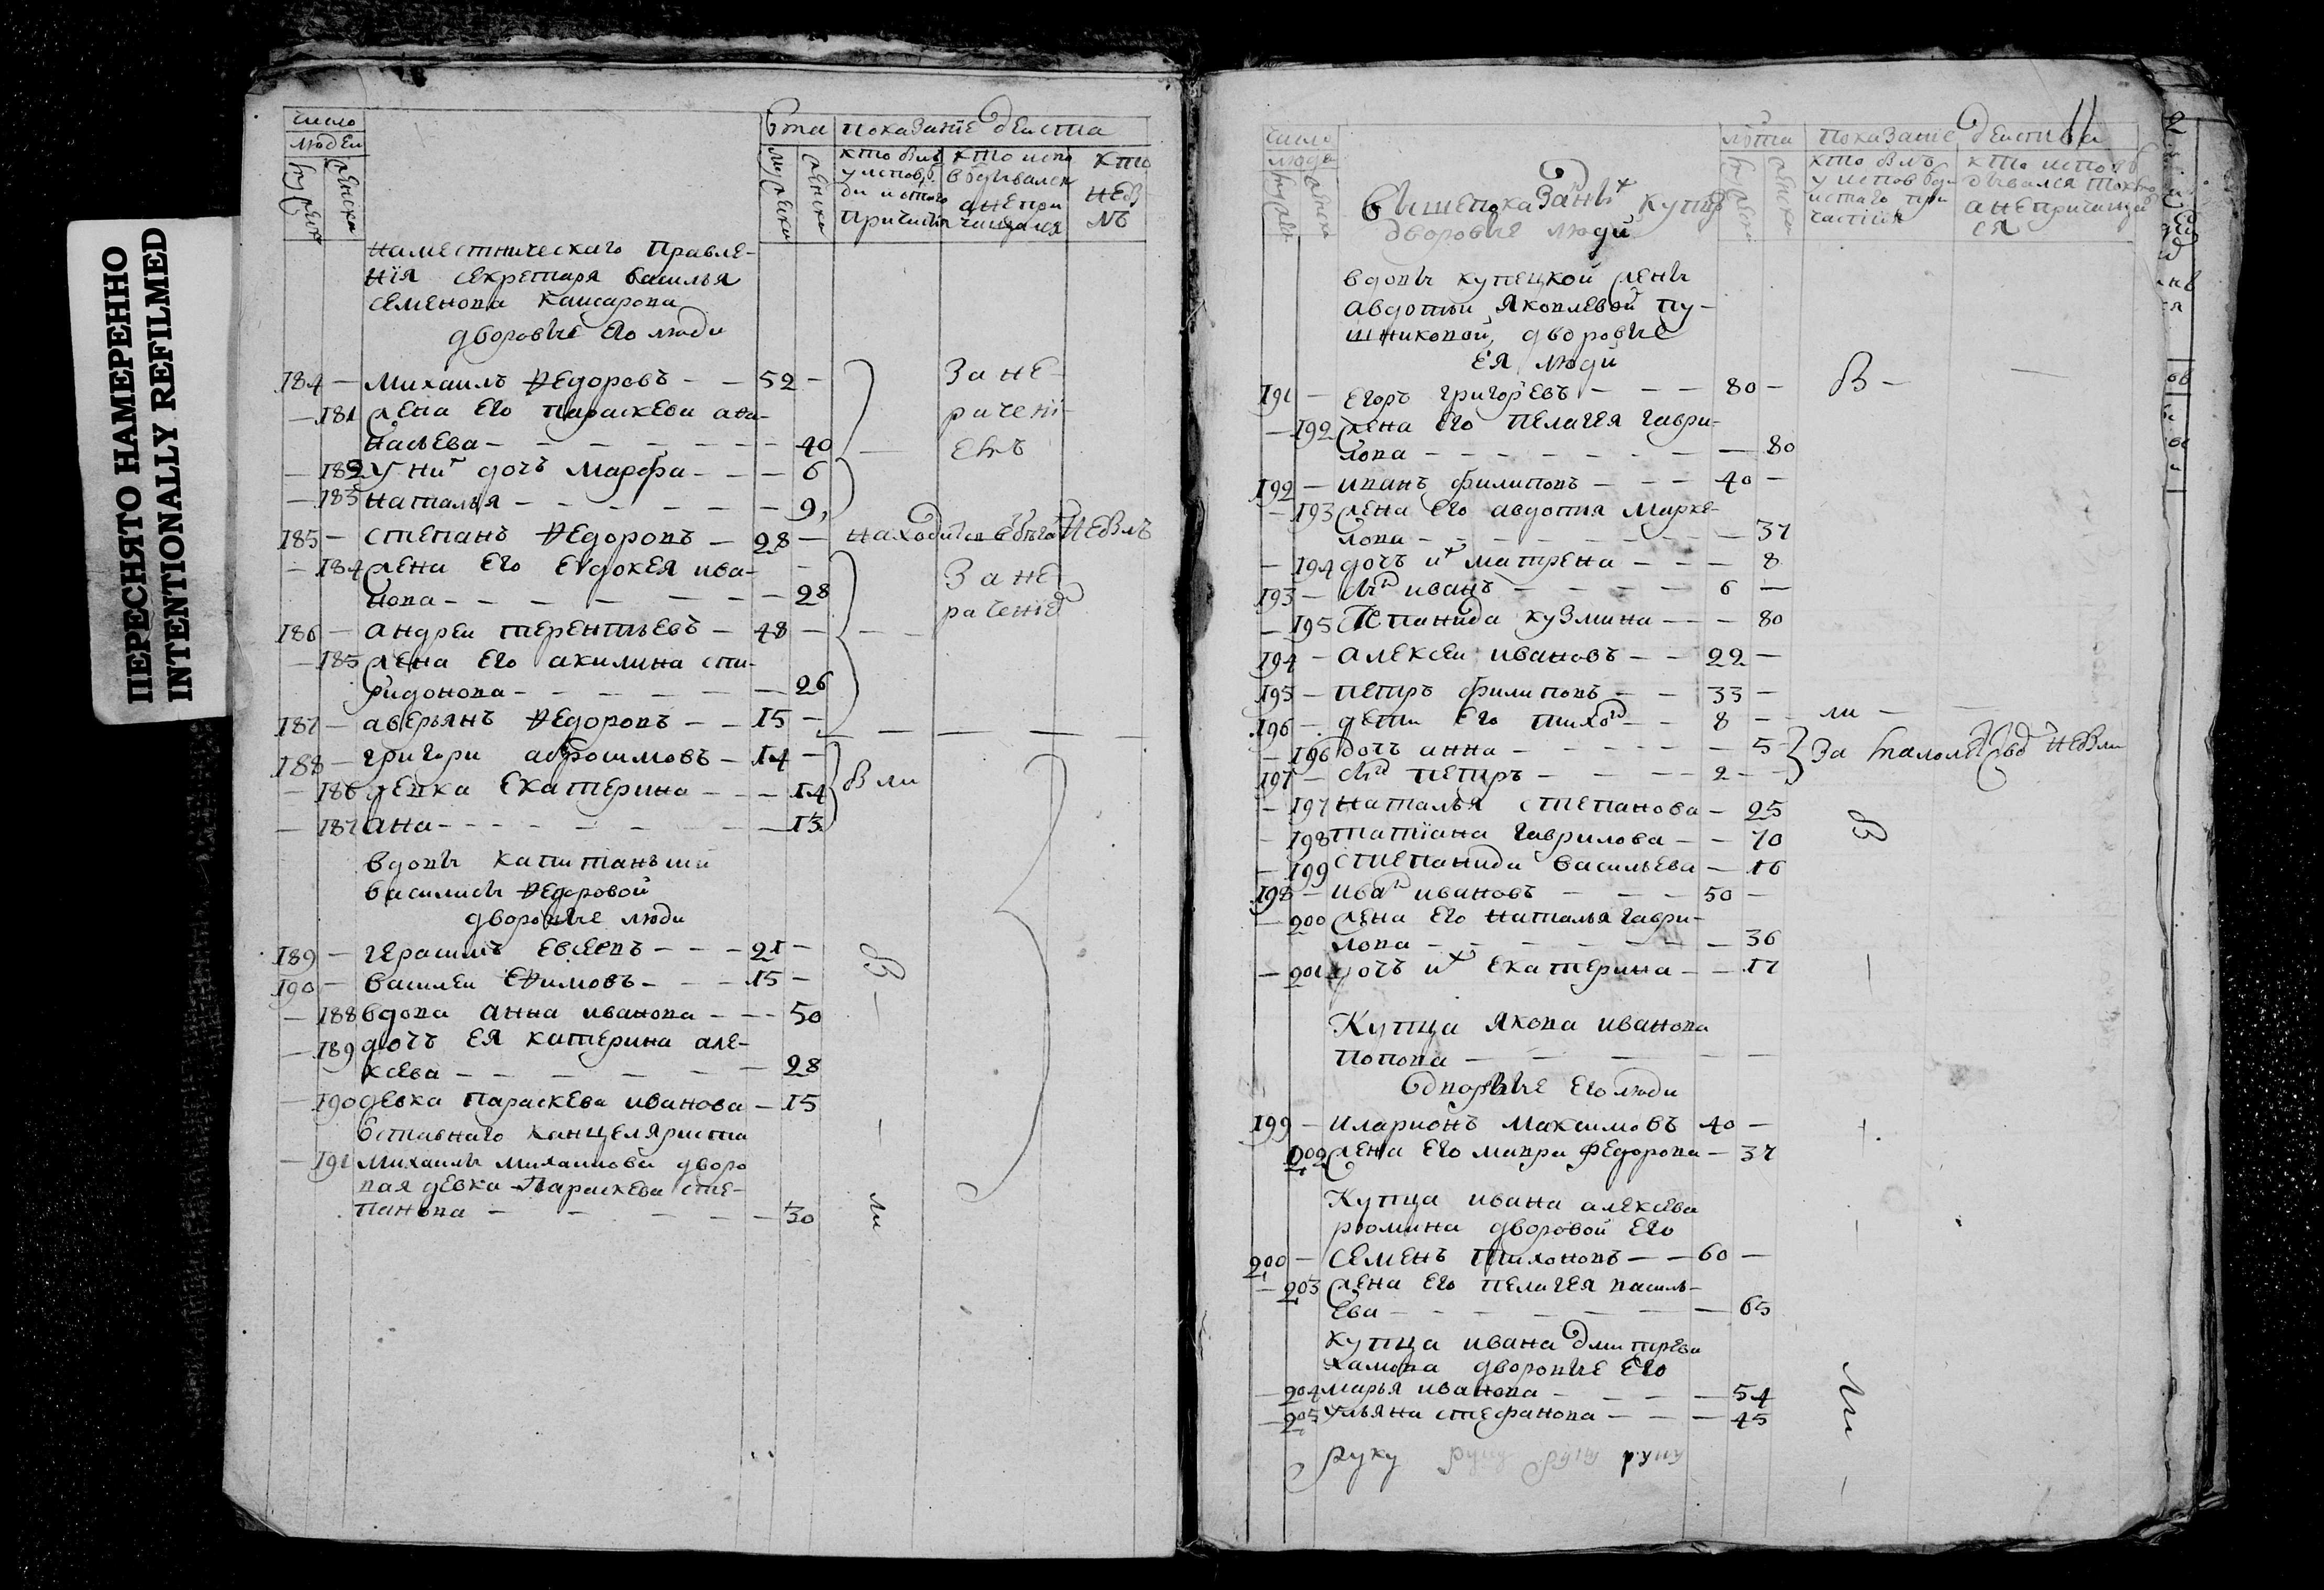 ПЕРЕСНЯТО НАМЕРЕННО
INTENTIONALLY REFILMED
число
людеи
мужеск
женска
лета
показание деиства
мужеска
женска
кто был
у исповѣ
ди и с%того
причастия
кто испо
ведывался
а не при
чащался
кто
не бы
лъ
наместническаго правле-
нїя секретаря василья
семенова каисарова
дворовые его люди
184 — михаилъ Ѳедоровъ — — 52 —
— 181 жена его параскева афа-
насьева — — — 40
за не
рачені
емъ
— 182 у них дочъ марфа — — — 6
— 183 наталья — — — 9
185 — степанъ Ѳедоровъ — 28 — находится в бѣгах не былъ
— 184 жена его евдокея ива-
нова — — — 28
за не
рачение
186 — андреи терентьевъ — 48 —
— 185 жена его акилина спи-
ридонова — — — 26
187 — аверьянъ Ѳедоровъ — — 15 —
188 — григори аброшимовъ — 14 —
— 186 девка екатерина — — — 14 были
— 187 ана — — — 13
вдовы капитаньши
василисы Ѳедоровой
дворовые люди
189 — герасимъ евсеевъ — — — 21 —
190 — василеи еѲимовъ — — — 15 —
— 188 вдова анна иванова — — — 50
— 189 дочъ ея катерина але-
ксеева — — — 28
— 190 девка параскева иванова — 15
отставнаго канцеляриста
— 191 михаилы михаилова дворо
вая девка параскева сте-
панова — — — 30
бы
ли
11
число
люде
мужеск
женска
лѣта
показание деиства
мужеска
женска
кто былъ
у исповѣди
и стаго при
частия
кто исповѣ
дывался токмо
а не причащал
ся
вышепоказанных купцо
дворовые люди
вдовы купецкой жены
авдотьи яковлевой пу-
шниковой, дворовые
ея люди
191 — егоръ григорьевъ — — — 80 — бы —
— 192 жена его пелагея гаври-
лова — — — 80
192 — иванъ филиповъ — — — 40 —
— 193 жена его авдотия марке-
лова — — — 37
— 194 дочъ их матрена — — — 8
193 — сын иванъ — — — 6 —
— 195 степанида кузмина — — — 80
194 — алексеи ивановъ — — 22 —
195 — петръ филиповъ — — 33 —
196 — дети его тихон — — 8 — ли —
— 196 дочъ анна — — — 5
за малолетством не были
197 — сын петръ — — — 2 —
— 197 наталья степанова — 25
— 198 татїана гаврилова — — 70
бы
— 199 степанида васильева — 16
198 — иван ивановъ — — — 50 —
— 200 жена его наталья гаври-
лова — — — 36
— 201 дочъ их екатерина — — 17
Купца якова иванова
попова —
дворовые его люди
199 — иларионъ максимовъ 40 —
202 жена его мавра федорова — 37
Купца ивана алексева
рюмина дворовой его
200 — семенъ тихоновъ — — 60 —
— 203 жена его пелагея василь-
ева — — — 65
купца ивана дмитрева
хамова дворовые его
— 204 марья иванова — — — 54
— 205 ульяна стефанова — — — 45
ли
руку руку руку руку